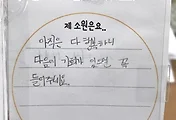 제 소원은요..
아직은 다 행복하니
다음에 기회가 있으면 꼭
들어주세요.